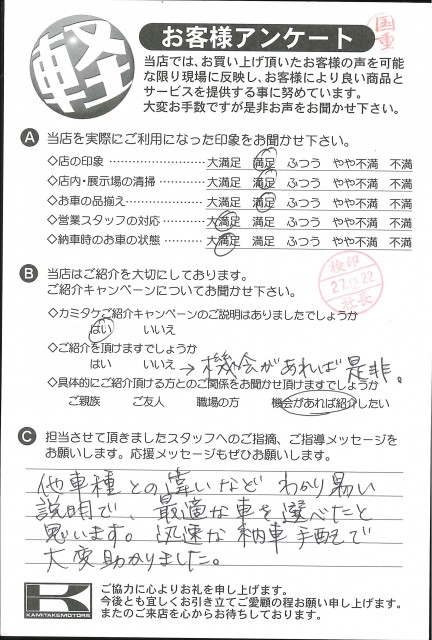 国重
軽
お客様アンケート
当店では、お買い上げ頂いたお客様の声を可能
な限り現場に反映し、お客様により良い商品と
サービスを提供する事に努めています。
大変お手数ですが是非お声をお聞かせ下さい。
A 当店を実際にご利用になった印象をお聞かせ下さい。
◇店の印象 …………………… 大満足 満足 ふつう やや不満 不満
◇店内・展示場の清掃 ………… 大満足 満足 ふつう やや不満 不満
◇お車の品揃え ……………… 大満足 満足 ふつう やや不満 不満
◇営業スタッフの対応 ………… 大満足 満足 ふつう やや不満 不満
◇納車時のお車の状態 ………… 大満足 満足 ふつう やや不満 不満
検印
27.12.22
社長
B 当店はご紹介を大切にしてあります。
ご紹介キャンペーンについてお聞かせ下さい。
◇カミタケご紹介キャンペーンのご説明はありましたでしょうか
はい いいえ
◇ご紹介を頂けますでしょうか
はい いいえ → 機会があれば是非。
◇具体的にご紹介頂ける方とのご関係をお聞かせ頂けますでしょうか
ご親族 ご友人 職場の方 機会があれば紹介したい
C 担当させて頂きましたスタッフへのご指摘、ご指導メッセージを
お願いします。応援メッセージもぜひお願いします。
他車種との違いなど わかり易い
説明で、最適な車を選べたと
思います。迅速な納車手配で
大変助かりました。
K
KAMITAKEMOTORS
ご協力に心よりお礼を申し上げます。
今後とも宜しくお引き立てご愛顧の程お願い申し上げます。
またのご来店を心からお待ちしております。